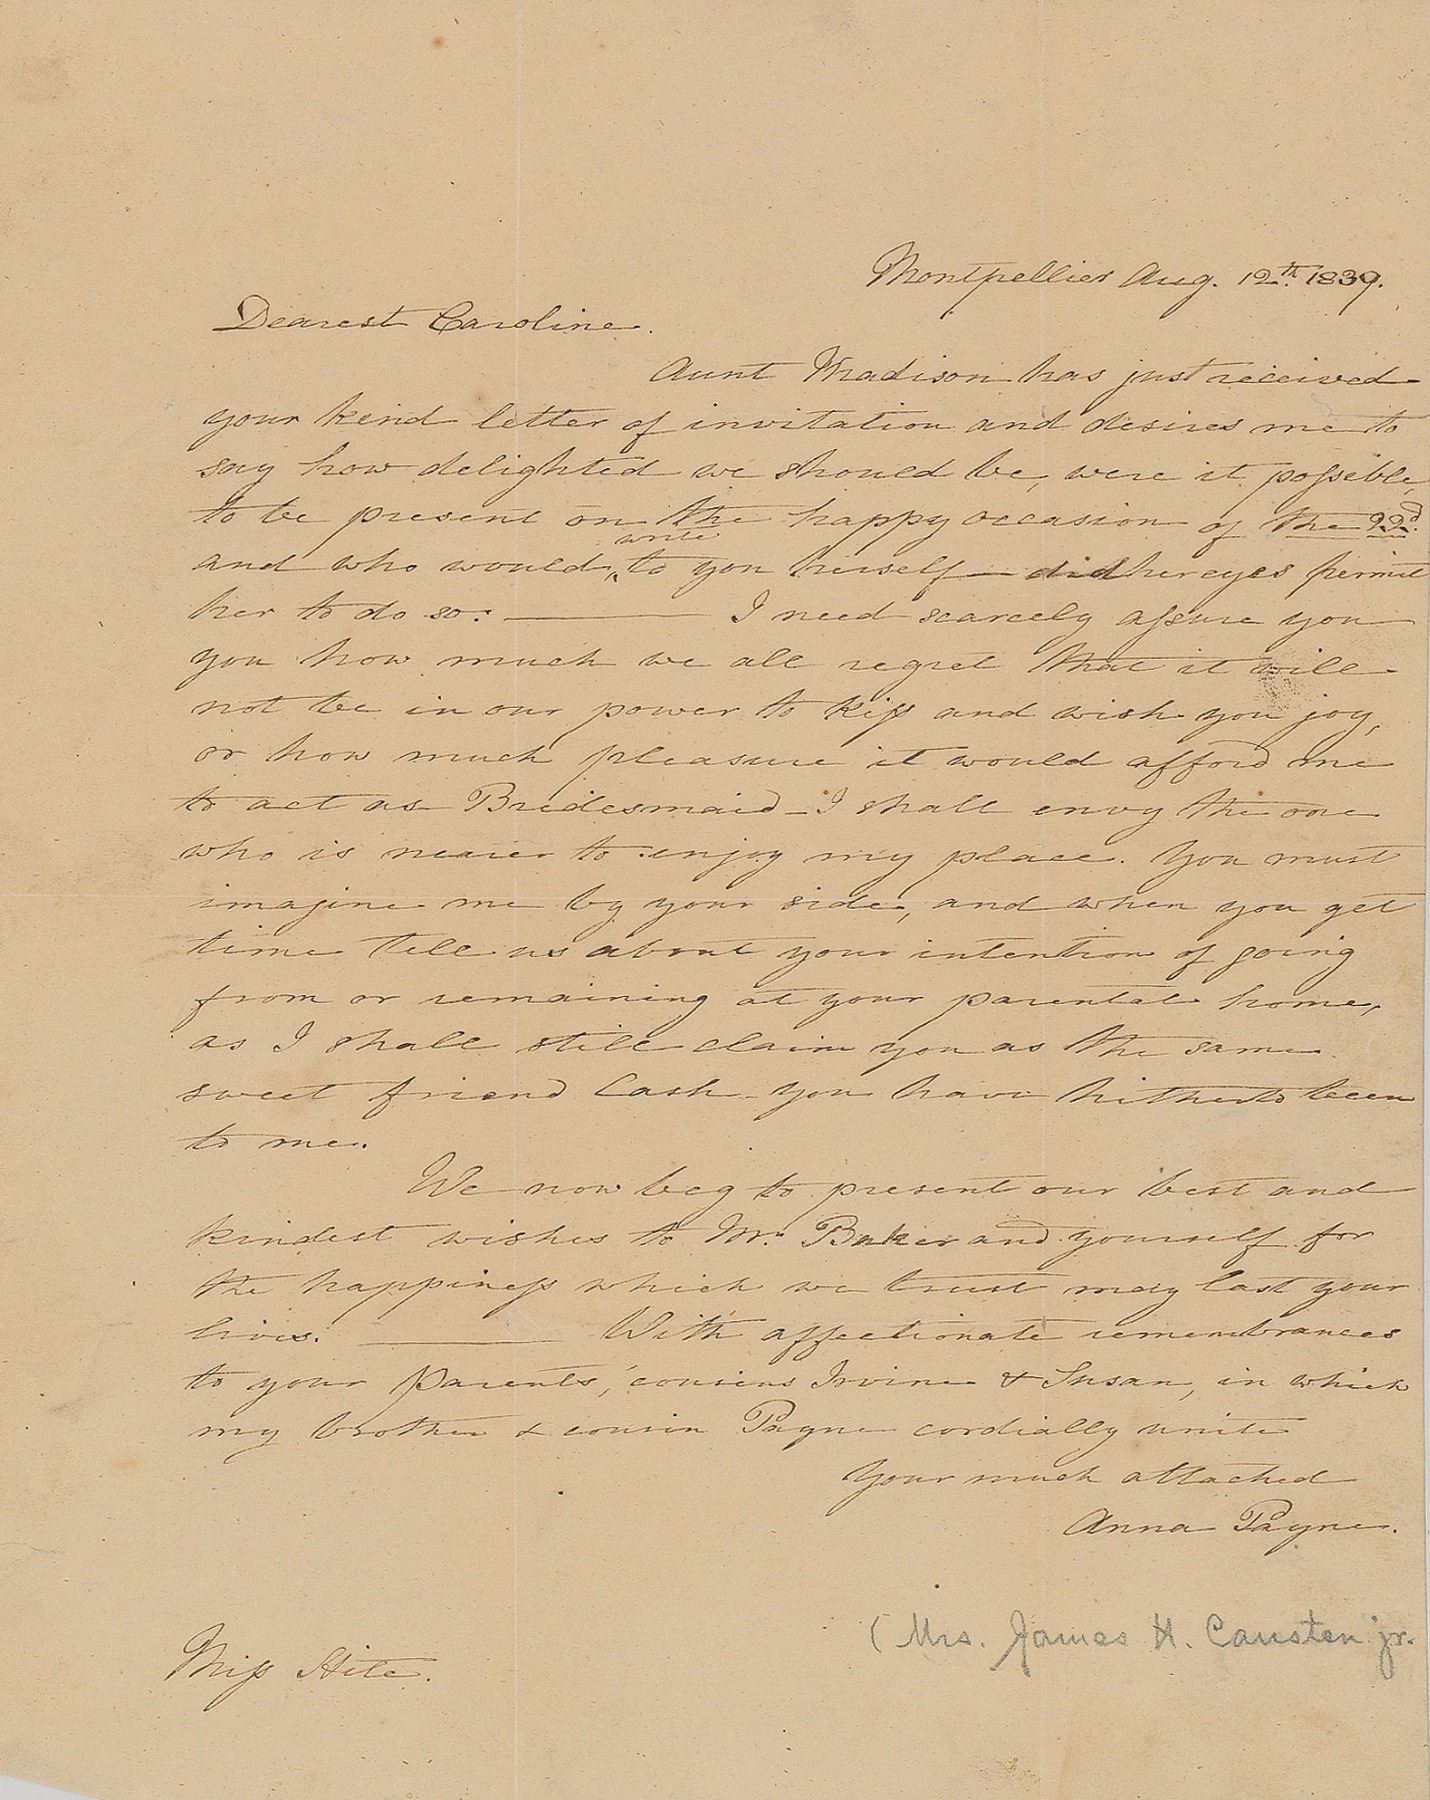 Montpellier Aug. 12th. 1839.
Dearest Caroline.
Aunt Madison has just received
your kind letter of invitation and desires me to
say how delighted we should be, were it possible,
to be present on the happy occasion of the 22d.
write
and who would ^ to you herself — did her eyes permit
her to do so: ——— I need scarcely assure you
you how much we all regret that it will
not be in our power to kiss and wish you joy,
or how much pleasure it would afford me
to act as Bridesmaid — I shall envy the one
who is nearer to enjoy my place. You must
imagine me by your side, and when you get
time tell us about your intention of going
from or remaining at your parental home,
as I shall still claim you as the same
sweet friend Cash you have hitherto been
to me.
We now beg to present our best and
kindest wishes to Mr. Baker and yourself for
the happiness which we trust may last your
lives. ——— With affectionate remembrances
to your Parents, cousins Irvine & Susan, in which
my brother & cousin Payne cordially unite
Your much attached
Anna Payne.
(Mrs. James H. Causten jr.
Miss Hite.